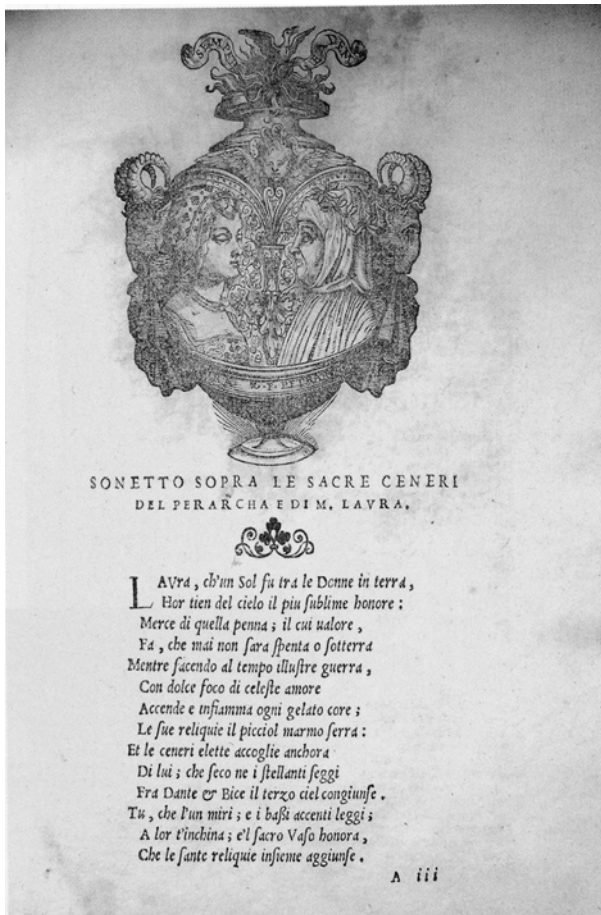 SEMPER EADEM
M. F. PETRAR
SONETTO SOPRA LE SACRE CENERI
DEL PERARCHA E DI M. LAVRA.
LAVra, ch'un Sol fu tra le Donne in terra,
Hor tien del cielo il piu ſublime honore:
Merce di quella penna; il cui ualore,
Fa, che mai non ſara ſpenta o ſotterra
Mentre facendo al tempo illuſtre guerra,
Con dolce foco di celeſte amore
Accende e infiamma ogni gelato core;
Le ſue reliquie il picciol marmo ſerra:
Et le ceneri elette accoglie anchora
Di lui; che ſeco ne i ſtellanti ſeggi
Fra Dante & Bice il terzo ciel congiunſe.
Tu, che l'un miri; e i baßi accenti leggi;
A lor t'inchina; e'l ſacro Vaſo honora,
Che le ſante reliquie inſieme aggiunſe.
A iii